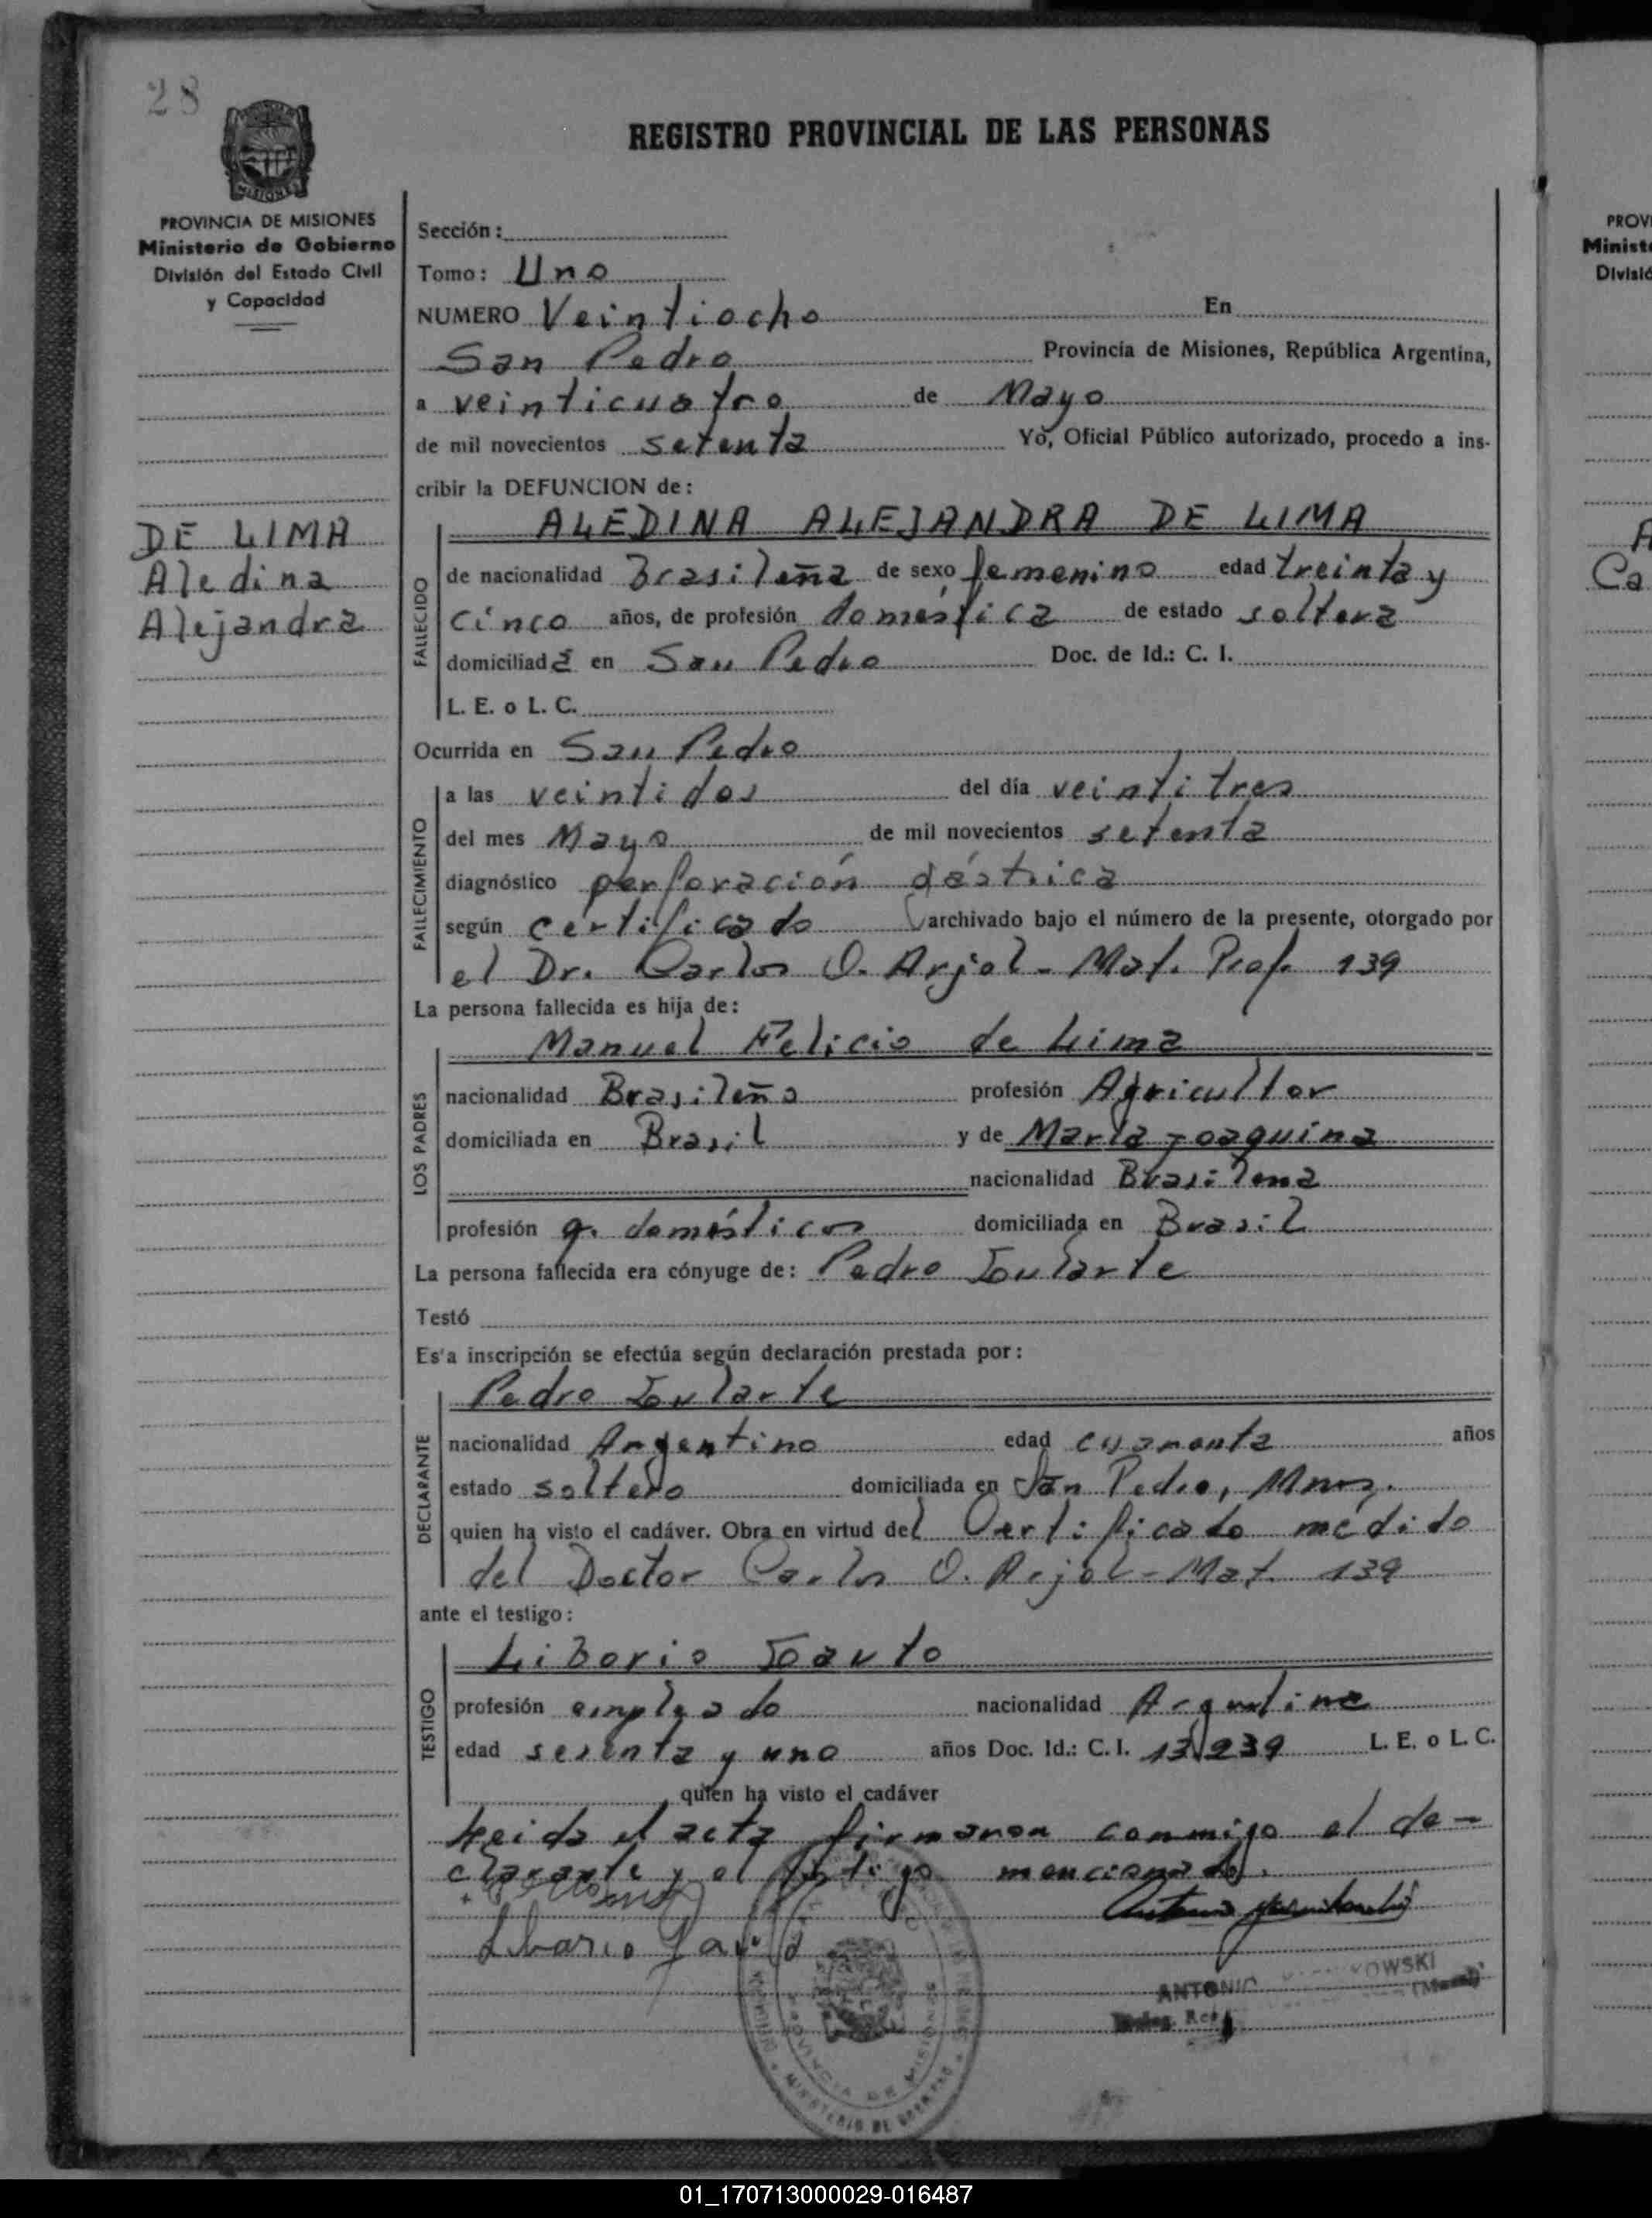 28
REGISTRO PROVINCIAL DE LAS PERSONAS
MISIONES
PROVINCIA DE MISIONES
Ministerio de Gobierno
División del Estado Civil
y Capacidad
DE LIMA
Aledina
Alejandra
Sección:
Tomo: Uno
NUMERO Veintiocho En
San Pedro Provincia de Misiones, República Argentina,
a veinticuatro de Mayo
de mil novecientos setenta Yo, Oficial Público autorizado, procedo a ins-
cribir la DEFUNCION de:
FALLECIDO
ALEDINA ALEJANDRA DE LIMA
de nacionalidad Brasileña de sexo femenino edad treinta y
cinco años, de profesión doméstica de estado soltera
domiciliada en San Pedro Doc. de Id.: C. I.
L. E. o L. C.
Ocurrida en San Pedro
FALLECIMIENTO
a las veintidos del día veintitres
del mes Mayo de mil novecientos setenta
diagnóstico perforación gástrica
según certificado archivado bajo el número de la presente, otorgado por
el Dr. Carlos O. Arjol - Mat. Prof. 139
La persona fallecida es hija de:
LOS PADRES
Manuel Felicio de Lima
nacionalidad Brasileño profesión Agricultor
domiciliada en Brasil y de María Joaquina
nacionalidad Brasilena
profesión q. domésticos domiciliada en Brasil
La persona fallecida era cónyuge de: Pedro
Testó
Es'a inscripción se efectúa según declaración prestada por:
DECLARANTE
Pedro
nacionalidad Argentino edad cuarenta años
estado soltero domiciliada en San Pedro, Mnes.
quien ha visto el cadáver. Obra en virtud del Certificado médido
del Doctor Carlos O. Arjol - Mat. 139
ante el testigo:
TESTIGO
Liborio
profesión empleado nacionalidad Argentina
edad sesenta y uno años Doc. Id.: C. I. 13.239 L. E. o L. C.
quien ha visto el cadáver
Leida el acta firmaron conmigo el de-
clarante y el testigo mencionado.
ANTONIO KOWSKI
PROVINCIA DE MISIONES
MINISTERIO DE GOBIERNO
PROVI
Ministe
Divisió
A
Ca
01_170713000029-016487